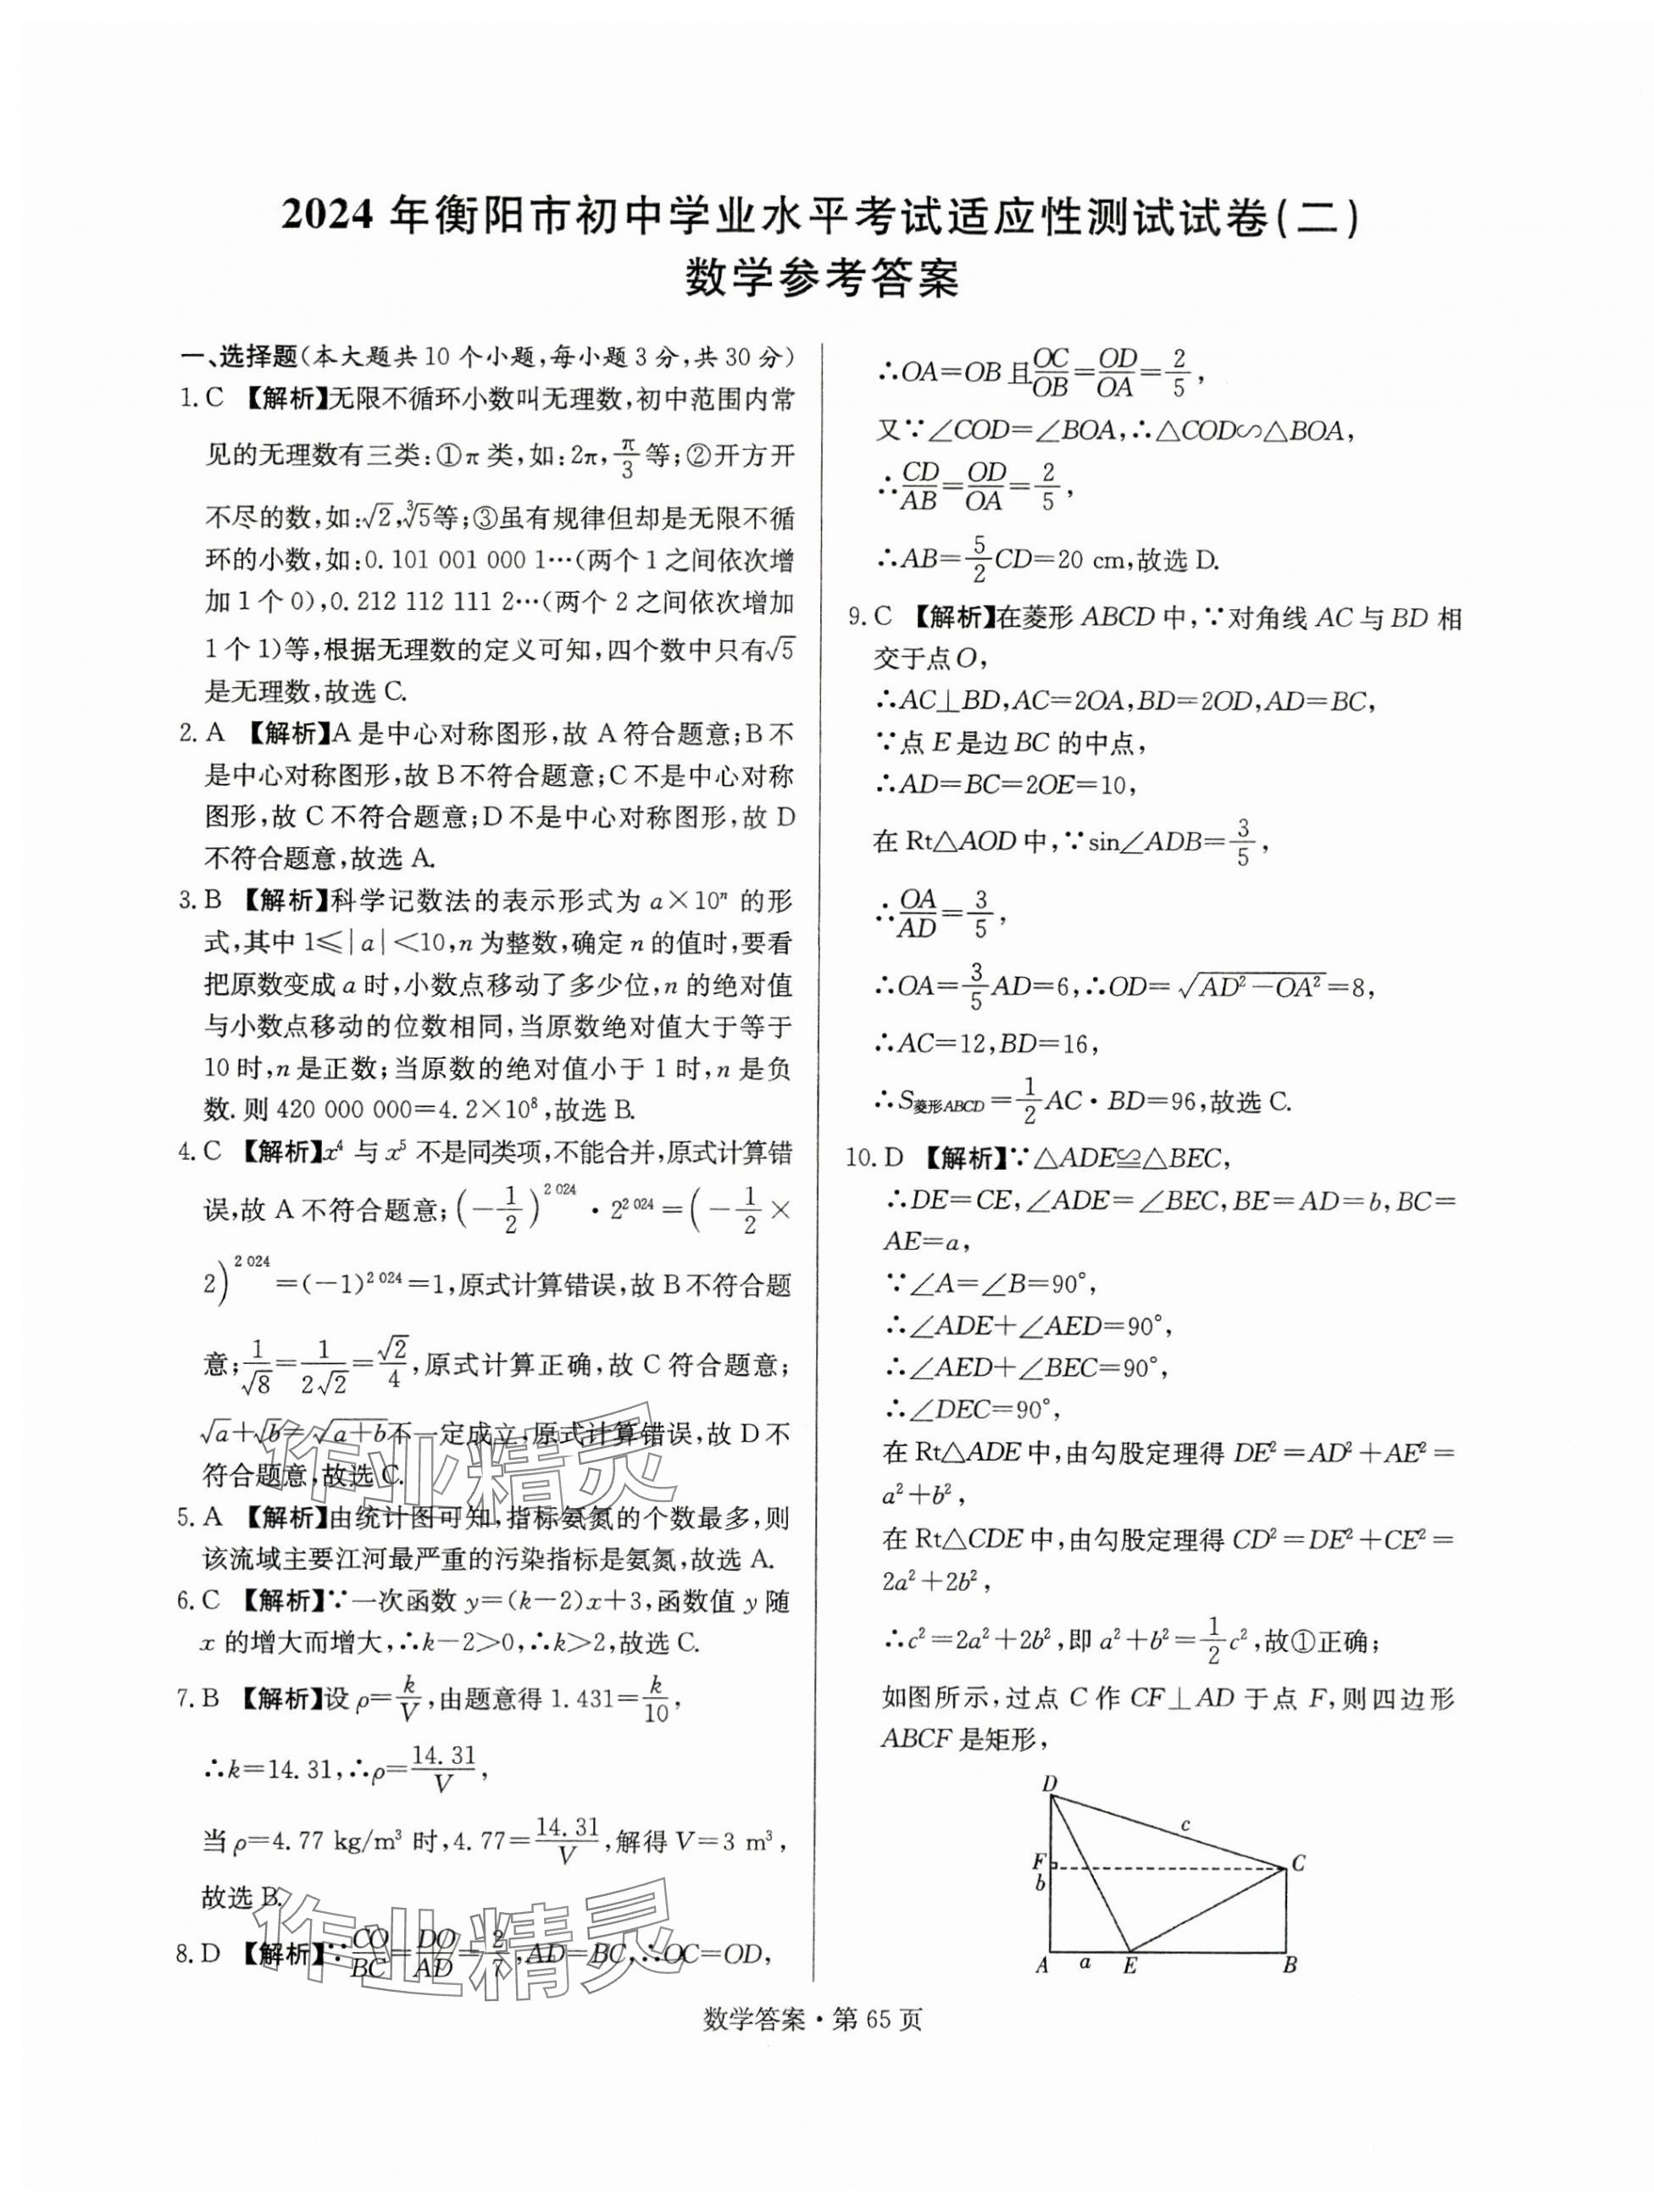 2024 年衡阳市初中学业水平考试适应性测试试卷(二)
数学参考答案
一、选择题(本大题共 10 个小题,每小题 3 分,共 30 分)
1. C 【解析】无限不循环小数叫无理数,初中范围内常
见的无理数有三类:①π 类,如:2π,π/3等;②开方开
不尽的数,如:√2,∛5等;③虽有规律但却是无限不循
环的小数,如:0.101 001 000 1…(两个 1 之间依次增
加 1 个 0),0.212 112 111 2…(两个 2 之间依次增加
1 个 1)等,根据无理数的定义可知,四个数中只有√5
是无理数,故选 C.
2. A 【解析】A 是中心对称图形,故 A 符合题意;B 不
是中心对称图形,故 B 不符合题意;C 不是中心对称
图形,故 C 不符合题意;D 不是中心对称图形,故 D
不符合题意,故选 A.
3. B 【解析】科学记数法的表示形式为 a×10ⁿ 的形
式,其中 1≤|a|<10,n 为整数,确定 n 的值时,要看
把原数变成 a 时,小数点移动了多少位,n 的绝对值
与小数点移动的位数相同,当原数绝对值大于等于
10 时,n 是正数;当原数的绝对值小于 1 时,n 是负
数.则 420 000 000=4.2×10⁸,故选 B.
4. C 【解析】x⁴ 与 x⁵ 不是同类项,不能合并,原式计算错
误,故 A 不符合题意;(-1/2)^2 024 · 2^2 024=(-1/2×
2)^2 024=(-1)^2 024=1,原式计算错误,故 B 不符合题
意;1/√8=1/(2√2)=√2/4,原式计算正确,故 C 符合题意;
√a+√b=√(a+b)不一定成立,原式计算错误,故 D 不
符合题意,故选 C.
5. A 【解析】由统计图可知,指标氨氮的个数最多,则
该流域主要江河最严重的污染指标是氨氮,故选 A.
6. C 【解析】∵一次函数 y=(k-2)x+3,函数值 y 随
x 的增大而增大,∴k-2>0,∴k>2,故选 C.
7. B 【解析】设 ρ=k/V,由题意得 1.431=k/10,
∴k=14.31,∴ρ=14.31/V,
当 ρ=4.77 kg/m³ 时,4.77=14.31/V,解得 V=3 m³,
故选 B.
8. D 【解析】∵CO/BC=DO/AD=2/7,AD=BC,∴OC=OD,
∴OA=OB 且OC/OB=OD/OA=2/5,
又∵∠COD=∠BOA,∴△COD∽△BOA,
∴CD/AB=OD/OA=2/5,
∴AB=5/2CD=20 cm,故选 D.
9. C 【解析】在菱形 ABCD 中,∵对角线 AC 与 BD 相
交于点 O,
∴AC⊥BD,AC=2OA,BD=2OD,AD=BC,
∵点 E 是边 BC 的中点,
∴AD=BC=2OE=10,
在 Rt△AOD 中,∵sin∠ADB=3/5,
∴OA/AD=3/5,
∴OA=3/5AD=6,∴OD=√(AD²-OA²)=8,
∴AC=12,BD=16,
∴S菱形ABCD=1/2AC·BD=96,故选 C.
10. D 【解析】∵△ADE≌△BEC,
∴DE=CE,∠ADE=∠BEC,BE=AD=b,BC=
AE=a,
∵∠A=∠B=90°,
∴∠ADE+∠AED=90°,
∴∠AED+∠BEC=90°,
∴∠DEC=90°,
在 Rt△ADE 中,由勾股定理得 DE²=AD²+AE²=
a²+b²,
在 Rt△CDE 中,由勾股定理得 CD²=DE²+CE²=
2a²+2b²,
∴c²=2a²+2b²,即 a²+b²=1/2c²,故①正确;
如图所示,过点 C 作 CF⊥AD 于点 F,则四边形
ABCF 是矩形,
D
c
F
C
b
A a E B
数学答案·第 65 页
作业精灵
作业精灵